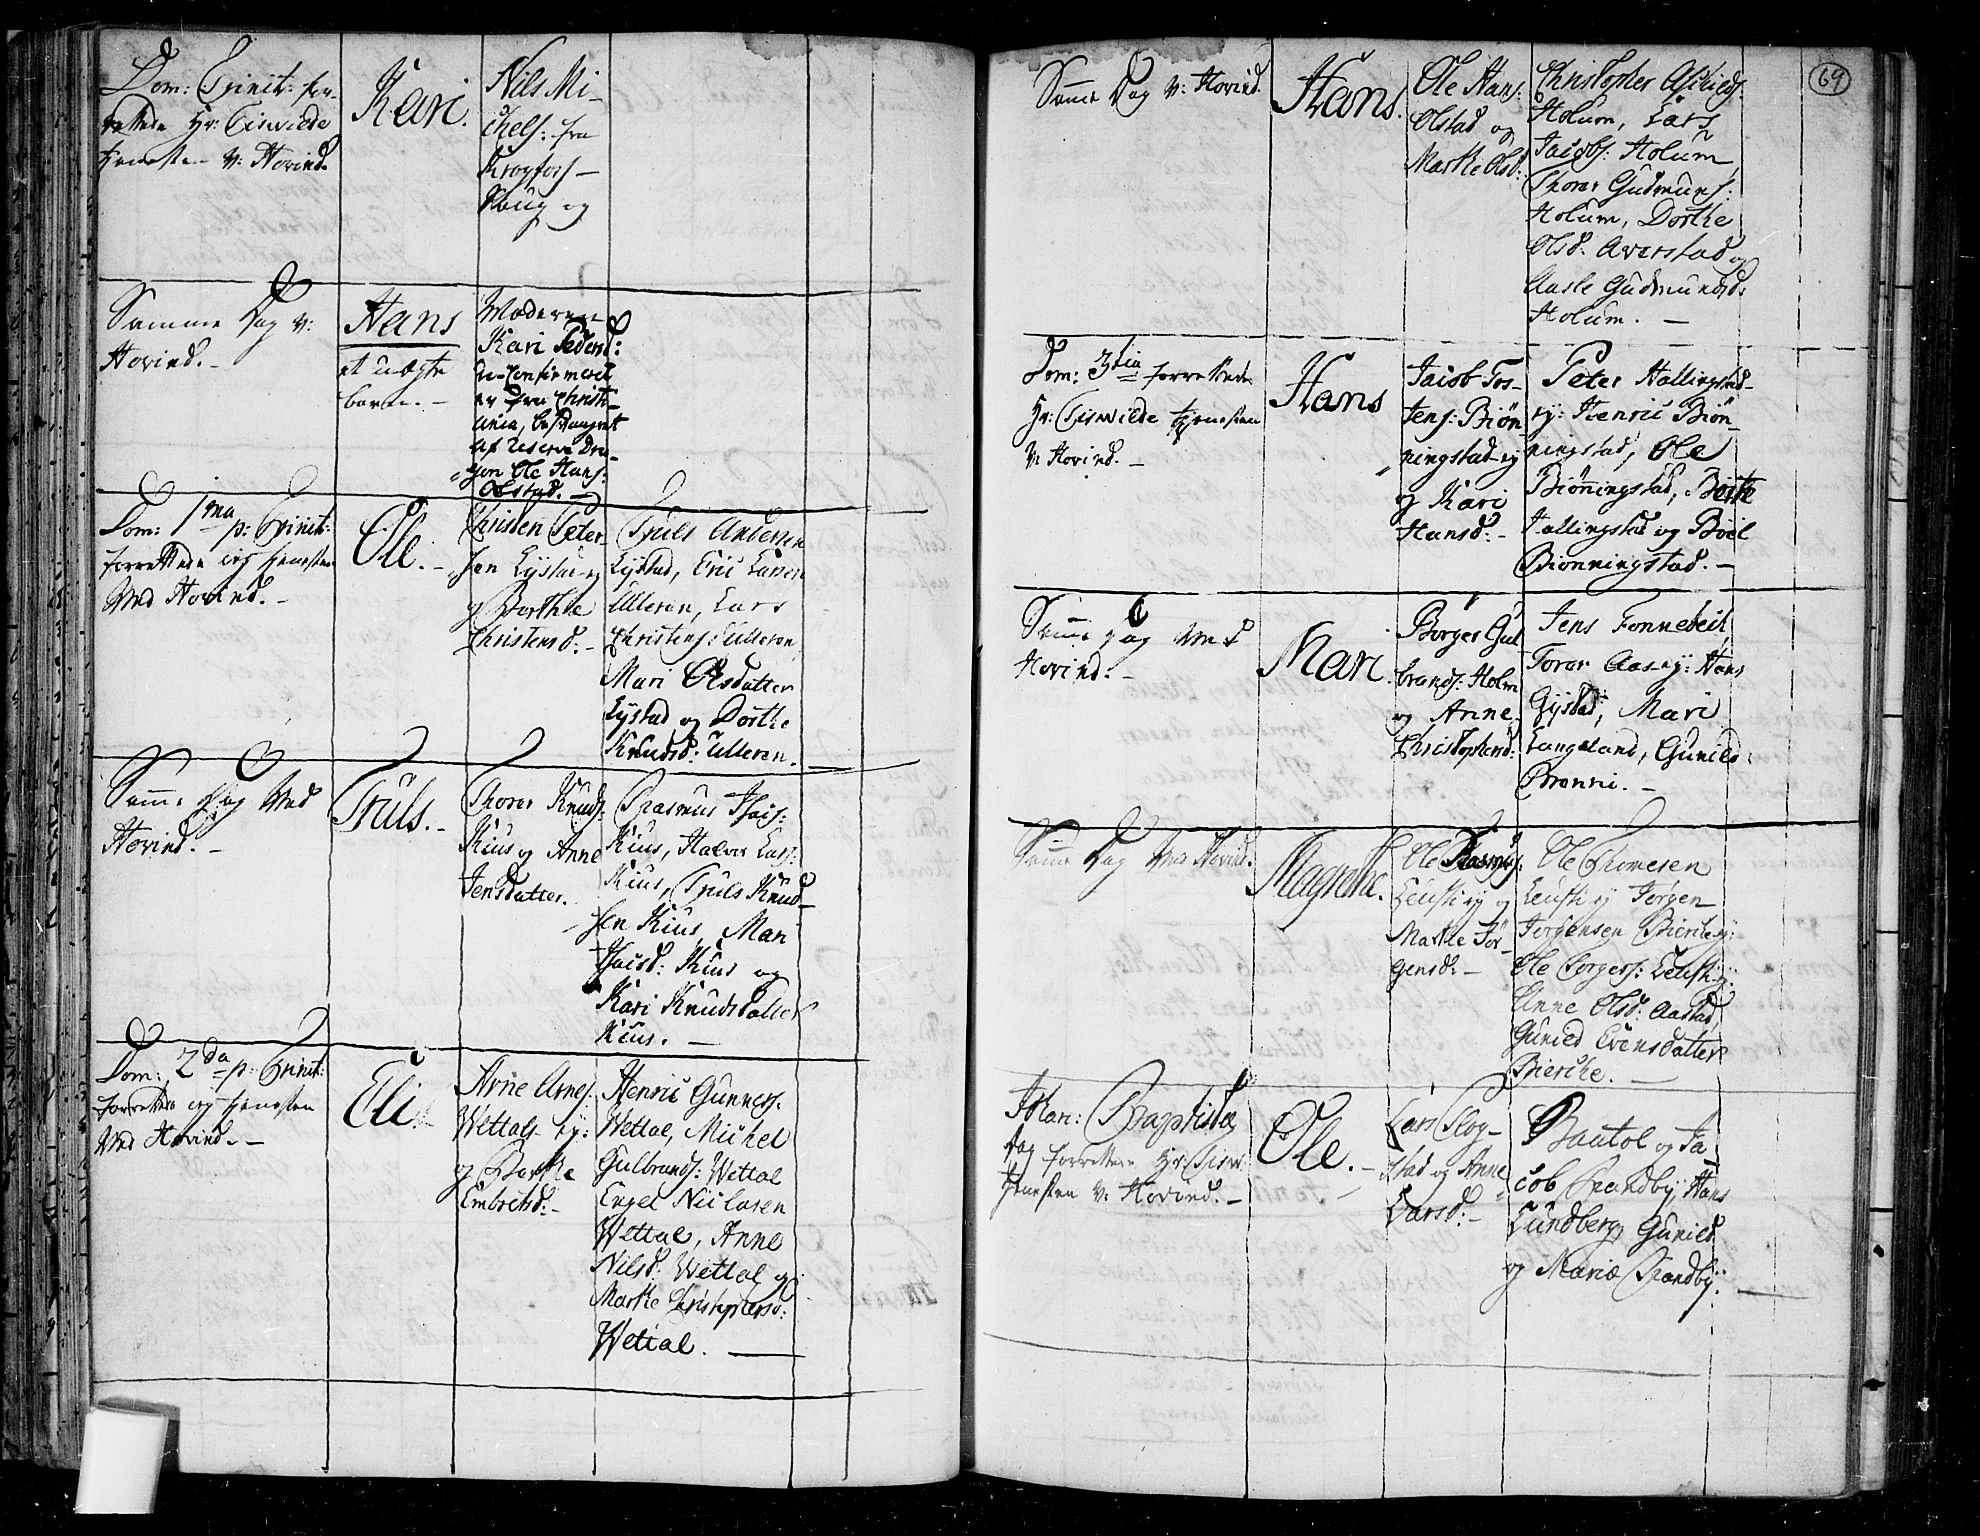 Dom: Trinit: for-
rettede Hr: Tisvilde
tienesten V: Hovind.
Kari.
Nils Mi-
chels: fra
Krogfors-
Houg og
Samme Dag V:
Hovind. -
Hans
et uægte
barn. -
Moderen
Kari Peders d:
u-confirmeret
er fra Christi-
ania, besvangret
af reserve Dra-
gon Ole Hans:
Olstad. -
Dom: 1ma p: Trinit:
forrettede ieg tienesten
Ved Hovind. -
Ole. -
Christen Peter-
sen Lystad-ey
og Dorthe
Christensd. -
Truls Andersen
Lystad, Eric Larsen
Ulleren, Lars
Christens: Ulleren,
Mari Olsdatter
Lystad og Dorthe
Knudsd: Ulleren. -
Samme Dag Ved
Hovind. -
Truls. -
Thorer Knuds:
Kius og Anne
Jensdatter.
Rasmus
Kius, Halvor Lars:
Kius, Truls Knud-
sen Kius, Mari
Kius og
Kari Knudsdatter
Kius. -
Dom: 2da p: Trinit:
forrettede ieg tienesten
Ved Hovind. -
Eli.
Arne Arnes:
Wettals-ey:
og Marthe
Embretsd: -
Henric Gunners:
Wettal, Michel
Gulbrands: Wettal
Engel Niclasen
Wettal, Anne
Nilsd: Wettal og
Marthe Christophersd:
Wettal. -
69
Samme Dag V: Hovind.
Hans.
Ole Hans:
Olstad og
Marthe Olsd:
Christopher
Holum, Lars
Jacobs: Holum,
Thorer Gudmunds:
Holum, Dorthe
Olsd: Averstad og
Aasle Gudmundsd:
Holum. -
Dom: 3tia forrettede
Hr: Tisvilde tienesten
V: Hovind. -
Hans
Jacob Tos-
tens: Biøn-
ningstad-ey
og Kari
Hansd: -
Peter Hallingstad-
ey: Henric Biøn-
ningstad, Ole
Biønningstad, Berthe
Hallingstad og Boel
Biønningstad. -
Samme Dag Ved
Hovind. -
Mari.
Borger Gul
brands: Holm
og Anne
Christophersd:
Jens Fonnebeck,
Torer Aas-ey: Hans
Gystad, Mari
Langeland, Gunild
Brønni. -
Samme Dag Ved Hovind.
Magrethe.
Ole Rasmus:
og
Marthe Jør-
gensd: -
Ole Thomesen
Jørgen
Jørgensen Biercke-ey:
Ole
Anne Olsd: Aastad,
Gunild Evensdatter
Biercke. -
Johan: Baptistæ
Dag forrettede Hr: Tisvil:
tienesten V: Hovind. -
Ole. -
Lars Slog-
stad og Anne
Larsd: -
Bautol og Ja-
cob Brandby, Hans
Lundberg, Gunild
og Mariæ Brandby: